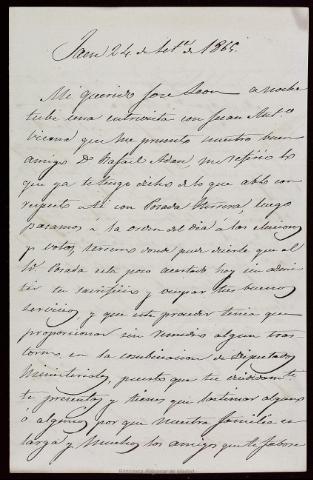 Jaen 24 de Set.e de 1865.
Mi querido Jose Leon anoche
tube una entrevista con Juan Ant.o
Viedma que me presento nuestro buen
amigo Dn Rafael Adan, me refirio lo
que ya te tengo dicho de lo que ablo con
respecto a ti con Posada Herrera, luego
pasamos á la orden del dia á las elecciones
y votos, terreno donde pude decirle que el
Sr Posada esta poco acertado hoy en admi
tir tu sacrificio y ocupar tus buenos
servicios y que este proceder tenia que
proporcionar sin remedio algun tras
torno en la combinacion de Diputados
Ministeriales, puesto que tu
te presentas y tienes que lastimar alguno
ó algunos por que nuestra familia es
larga y muchos los amigos que te
Biblioteca Regional de Madrid